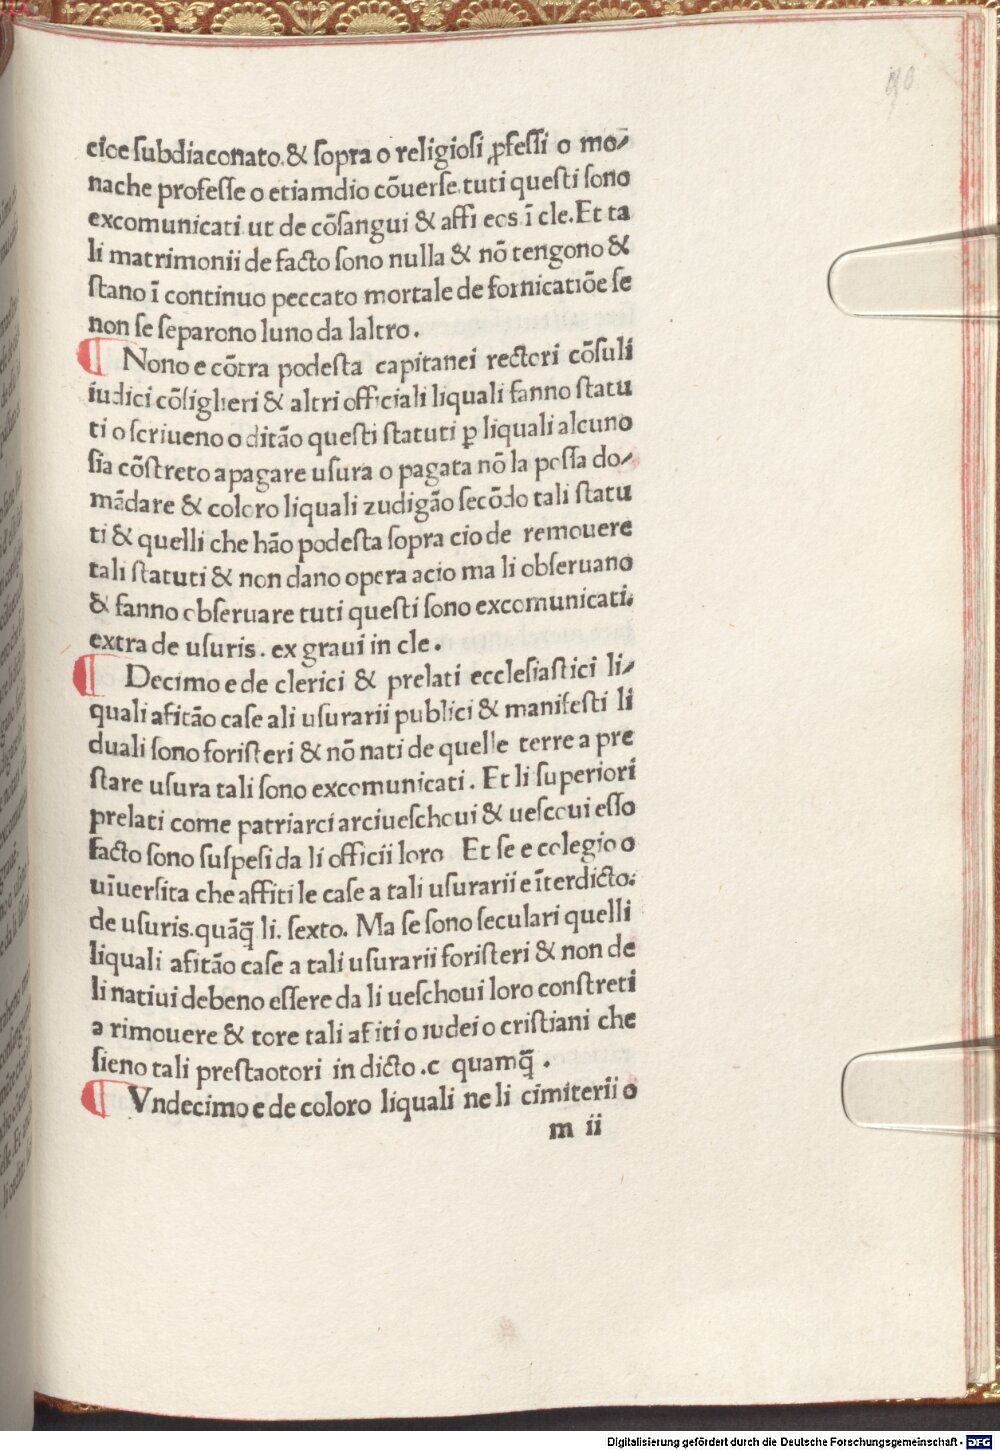 90
cioe subdiaconato.& sopra o religiosi ꝓfessi o mo/
nache professe o etiamdio cōuerse.tuti questi sono
excomunicati ut de cōsangui & affi eos.ī cle.Et ta
li matrimonii de facto sono nulla & nō tengono &
stano ī continuo peccato mortale de fornicatiōe se
non se separono luno da laltro.
¶ Nono e cōtra podesta capitanei rectori cōsuli
iudici cōsiglieri & altri officiali liquali fanno statu
ti o scriueno o ditāo questi statuti ꝑ liquali alcuno
sia cōstreto a pagare usura o pagata nō la possa do/
mādare & coloro liquali zudigāo secōdo tali statu
ti & quelli che hāo podesta sopra cio de remouere
tali statuti & non dano opera acio ma li obseruano
& fanno obseruare tuti questi sono excomunicati.
extra de usuris. ex graui in cle.
¶ Decimo e de clerici & prelati ecclesiastici li/
quali afitāo case ali usurarii publici & manifesti li
duali sono foristeri & nō nati de quelle terre a pre
stare usura tali sono excomunicati. Et li superiori
prelati come patriarci arciueschoui & uescoui esso
facto sono suspesi da li officii loro Et se e colegio o
uīuersita che affiti le case a tali usurarii e īterdicto.
de usuris.quāq̄ li. sexto. Ma se sono seculari quelli
liquali afitāo case a tali usurarii foristeri & non de
li natiui debeno essere da li ueschoui loro constreti
a rimouere & tore tali afiti o iudei o cristiani che
sieno tali prestaotori in dicto .c quamq̄ .
¶ Vndecimo e de coloro liquali ne li cimiterii o
m ii
Digitalisierung gefördert durch die Deutsche Forschungsgemeinschaft - DFG